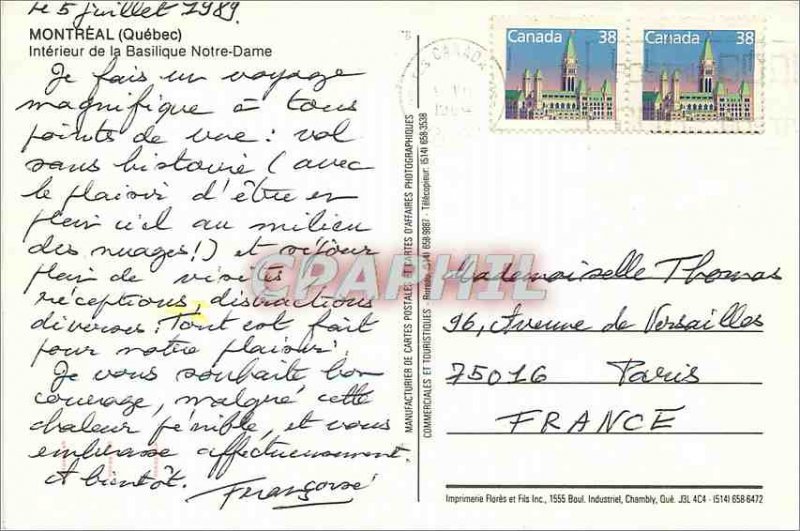 le 5 juillet 1989.
MONTRÉAL (Québec)
Intérieur de la Basilique Notre-Dame
Je fais un voyage
magnifique à tous
points de vue : vol
sans histoire (avec
le plaisir d'être en
plein ciel au milieu
des nuages!) et séjour
plein de visites,
réceptions, distractions
diverses. Tout est fait
pour notre plaisir.
Je vous souhaite bon
courage, malgré cette
chaleur pénible, et vous
embrasse affectueusement
A bientôt.
Françoise
MANUFACTURIER DE CARTES POSTALES ET CARTES D'AFFAIRES PHOTOGRAPHIQUES
COMMERCIALES ET TOURISTIQUES - (514) 658-9887 - Télécopieur: (514) 658-3538
Canada 38
Canada 38
CANADA
CPAPHIL
Mademoiselle Thomas
96, Avenue de Versailles
75016 Paris
FRANCE
Imprimerie Florès et Fils Inc., 1555 Boul. Industriel, Chambly, Qué. J3L 4C4 - (514) 658-6472